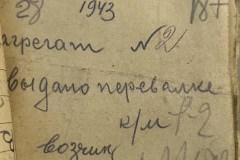 28 1943 187
агрегат №2
выдано перевалке
к/м
возчик